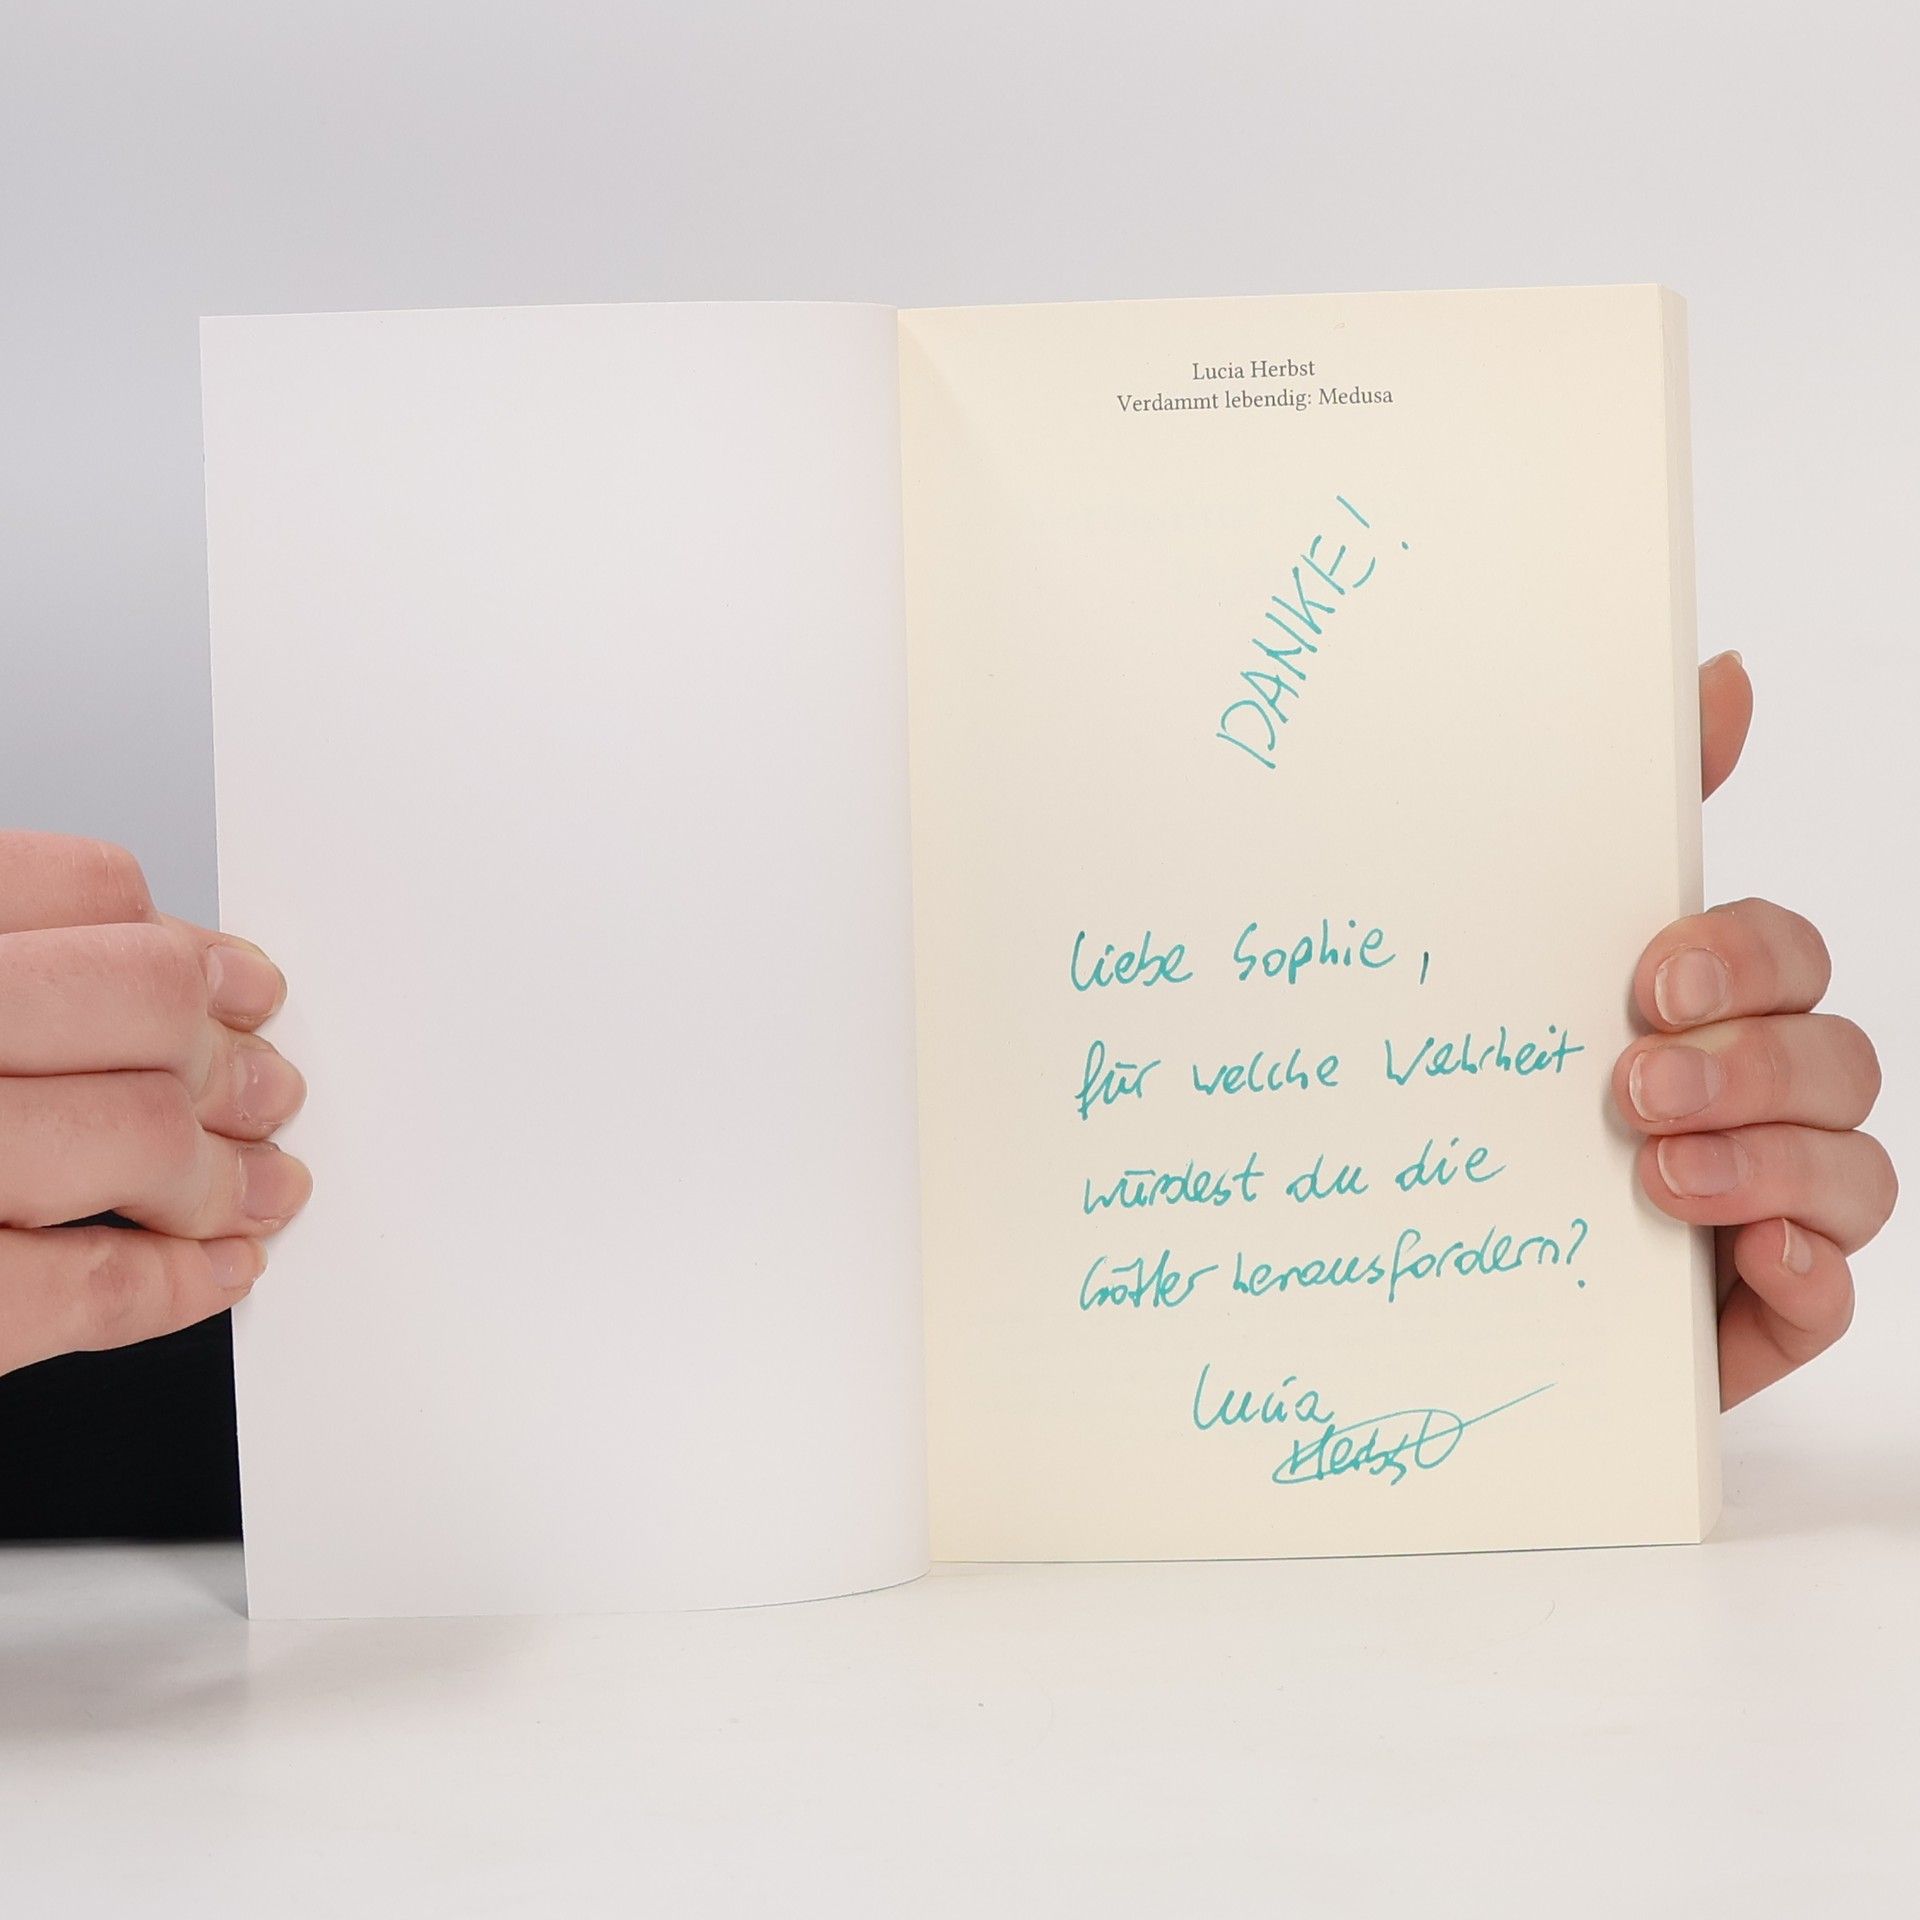 Lucia Herbst
Verdammt lebendig: Medusa
DANKE!
Liebe Sophie,
für welche Wahrheit
würdest du die
Götter herausfordern?
Lucia
Herbst